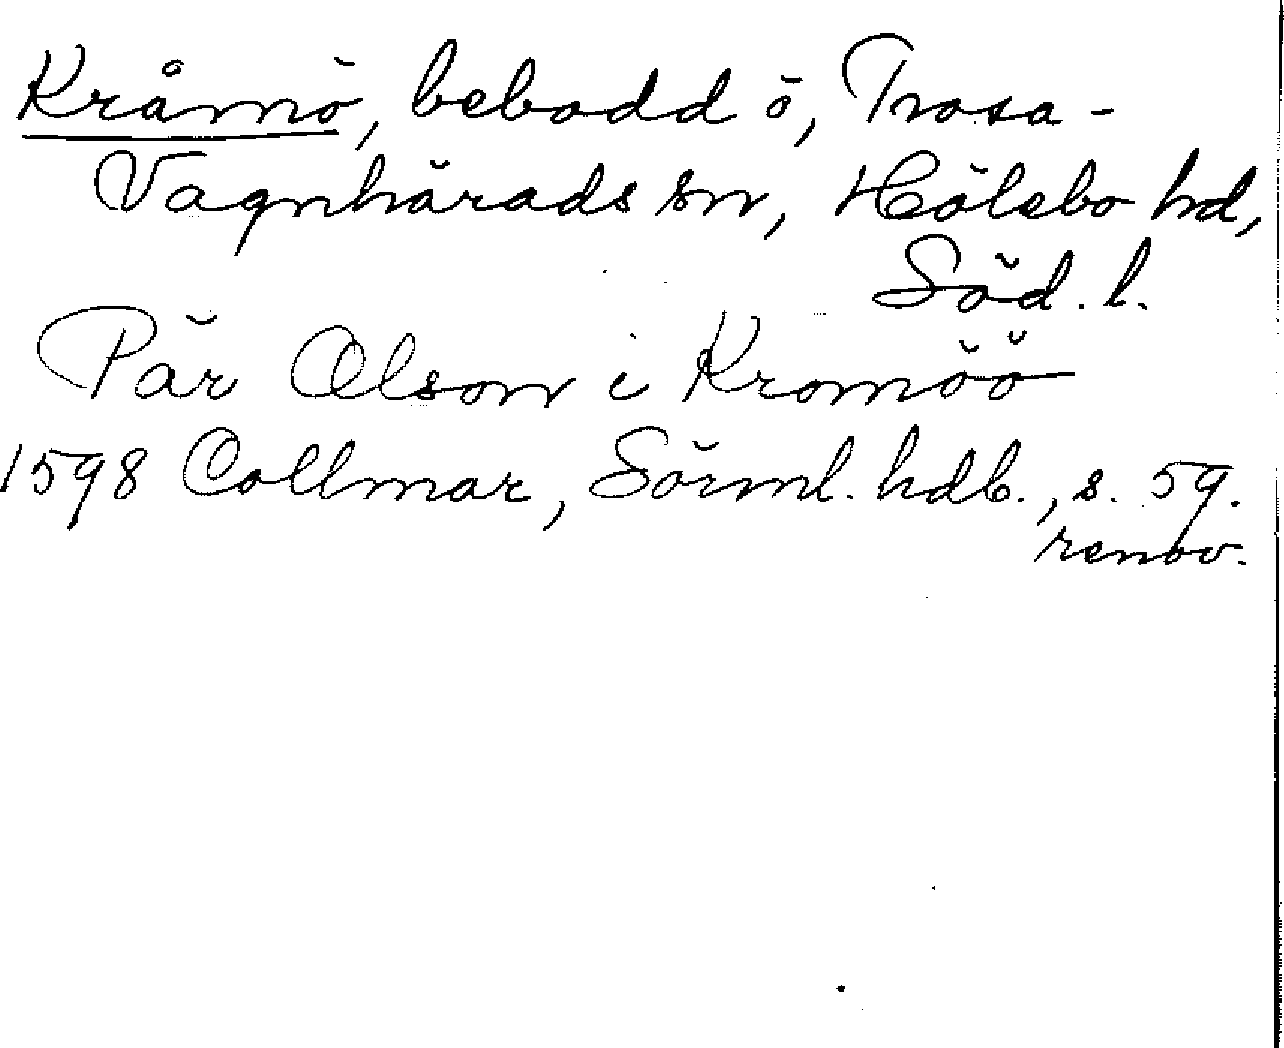 Kråmö, bebodd ö, Trosa-
Vagnhärads sn, Hölebo hd,
Söd. l.
Pär Olson i Kromöö
1598 Collmar, Sörml. hdb., s. 59.
renov.